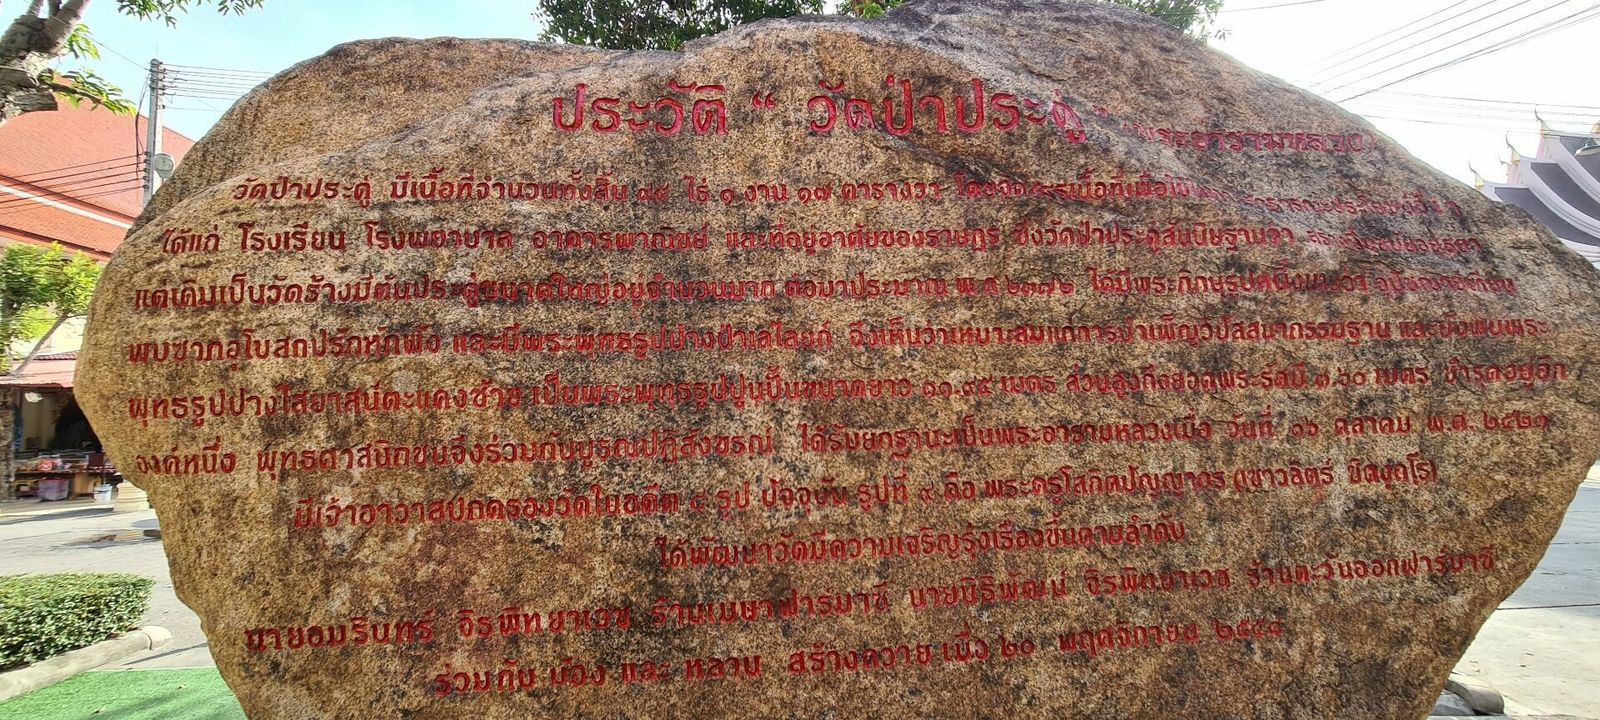 ประวัติ “ วัดป่าประดู่ ” (พระอารามหลวง)
วัดป่าประดู่ มีเนื้อที่จำนวนทั้งสิ้น ไร่ ๑ งาน ๑๗ ตารางวา
ได้แก่ โรงเรียน โรงพยาบาล อาคารพาณิชย์ และที่อยู่อาศัยของราษฎร ซึ่งวัดป่าประดู่สันนิษฐานว่า
แต่เดิมเป็นวัดร้างมีต้นประดู่ขนาดใหญ่อยู่จำนวนมาก ต่อมาประมาณ พ.ศ ได้มีพระภิกษุรูปหนึ่ง
พบซากอุโบสถปรักหักพัง และมีพระพุทธรูปปางป่าเลไลยก์ จึงเห็นว่าเหมาะสมแก่การบำเพ็ญวิปัสสนากรรมฐาน และยังพบพระ
พุทธรูปปางไสยาสน์ตะแคงซ้าย เป็นพระพุทธรูปปูนปั้นขนาดยาว ๑๑.๙๕ เมตร ส่วนสูงถึงยอดพระรัศมี ๓.๖๐ เมตร ชำรุดอยู่อีก
องค์หนึ่ง พุทธศาสนิกชนจึงร่วมกันบูรณปฏิสังขรณ์ ได้รับยกฐานะเป็นพระอารามหลวงเมื่อ วันที่ ๑๖ ตุลาคม พ.ศ. ๒๕๒๑
มีเจ้าอาวาสปกครองวัดในอดีต ๘ รูป ปัจจุบัน รูปที่ ๙ คือ พระครูโสภิตปัญญากร (เชาวลิตร์ ชิตงฺกโร)
ได้พัฒนาวัดมีความเจริญรุ่งเรืองขึ้นตามลำดับ
นายอมรินทร์ จิรพิทยาเวช ร้านเมษาฟาร์มาซี นายนิธิพัฒน์ จิรพิทยาเวช ร้านตะวันออกฟาร์มาซี
ร่วมกับ น้อง และ หลาน สร้างถวาย เมื่อ ๒๐ พฤศจิกายน ๒๕๔๘